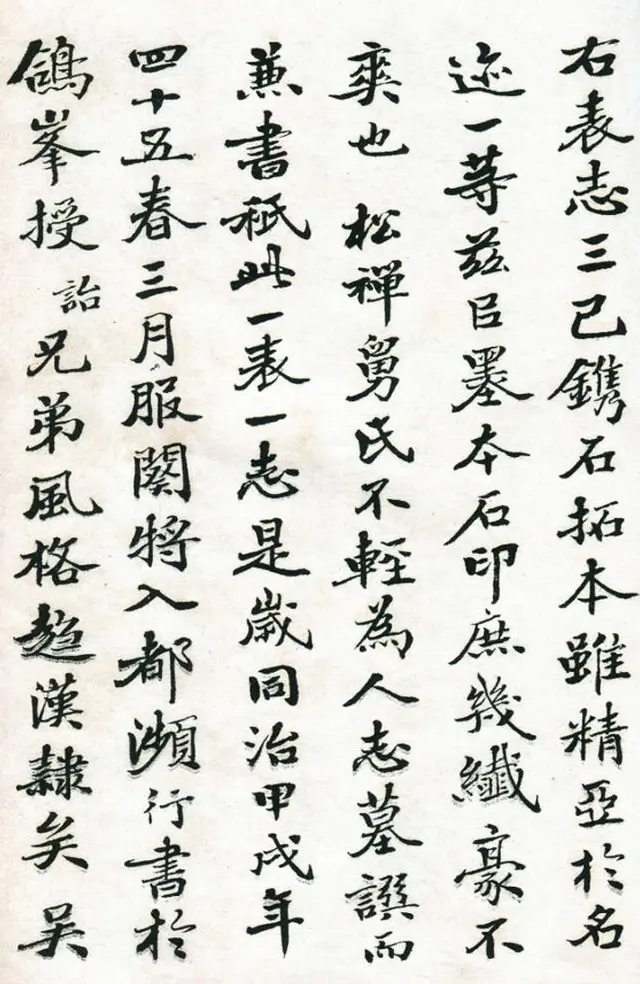 右表志三已鐫石拓本雖精亞於名
迹一等茲以墨本石印庶幾纖豪不
爽也 松禪舅氏不輕為人志墓譔而
兼書祇此一表一志是歲同治甲戌年
四十五春三月服闋將入都瀕行書於
鴿峯授 詒兄弟風格超漢隸矣 吴